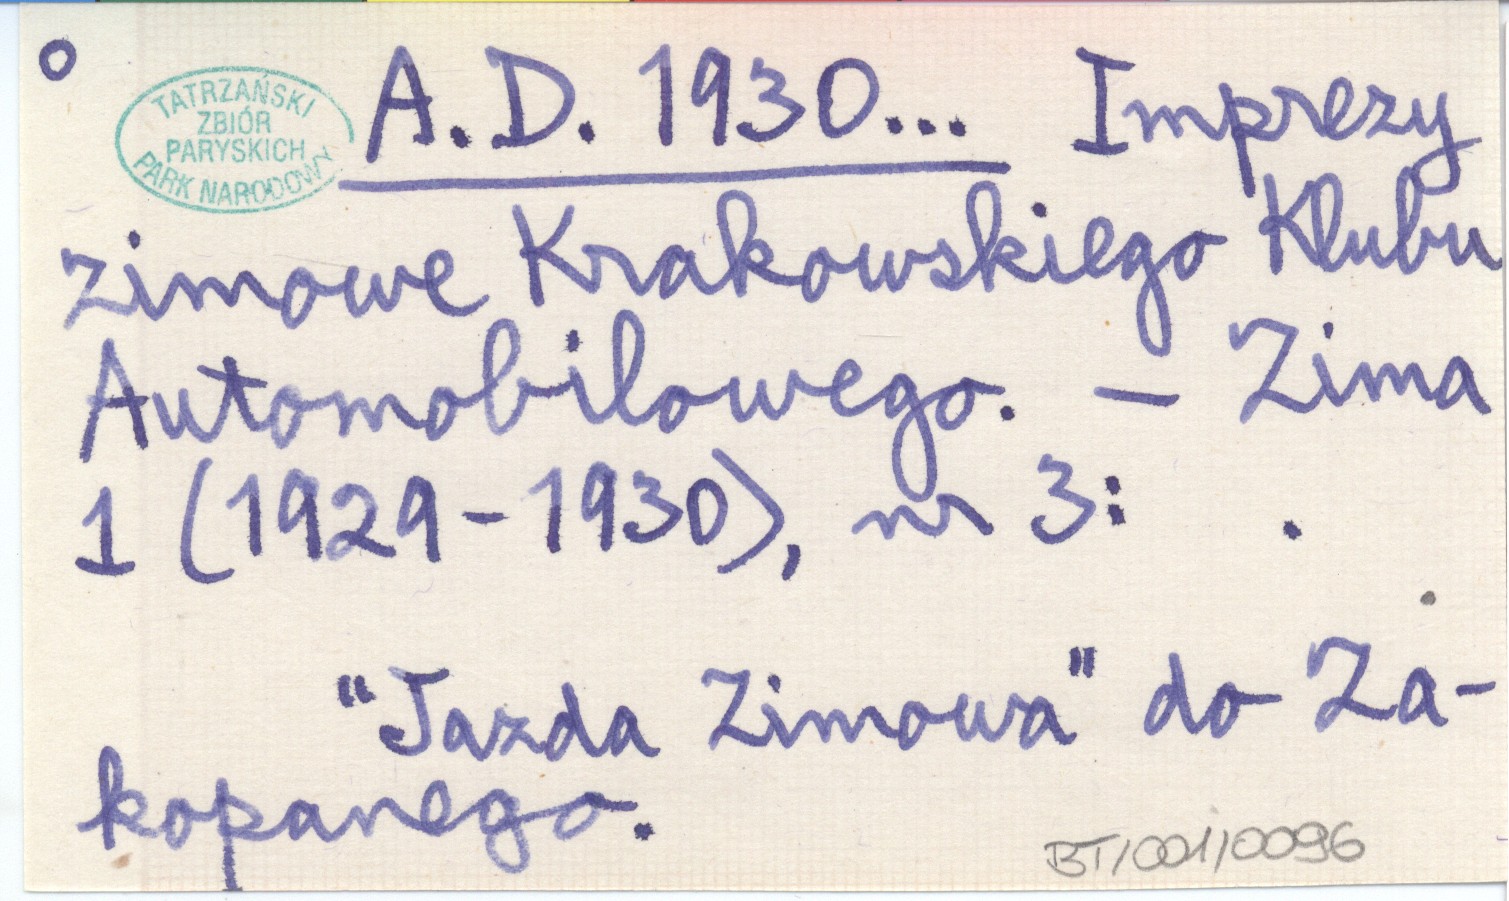 o
TATRZAŃSKI
ZBIÓR
PARYSKICH
PARK NARODOWY
A.D. 1930... Imprezy
zimowe Krakowskiego Klubu
Automobilowego. — Zima
1 (1929-1930), nr 3: .
"Jazda Zimowa" do Za-
kopanego.
BT/001/0096